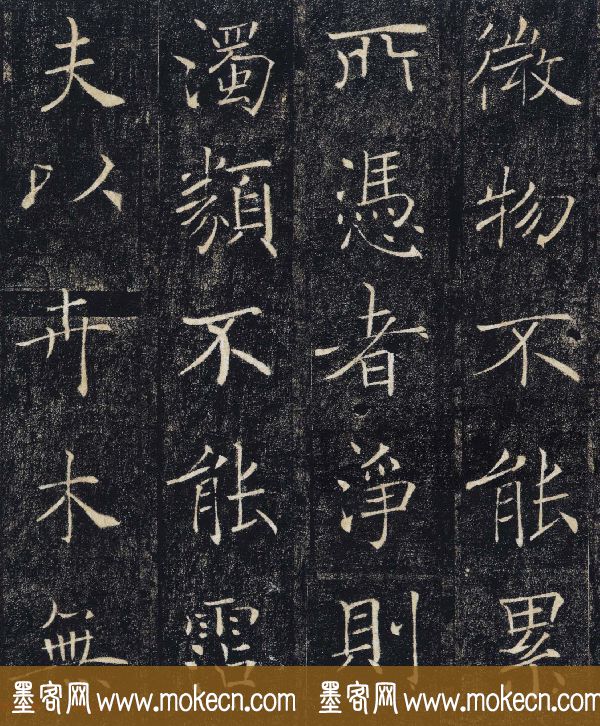 微物不能累
所憑者淨則
濁類不能霑
夫以卉木無
墨客网 www.mokecn.com 墨客网 www.mokecn.com